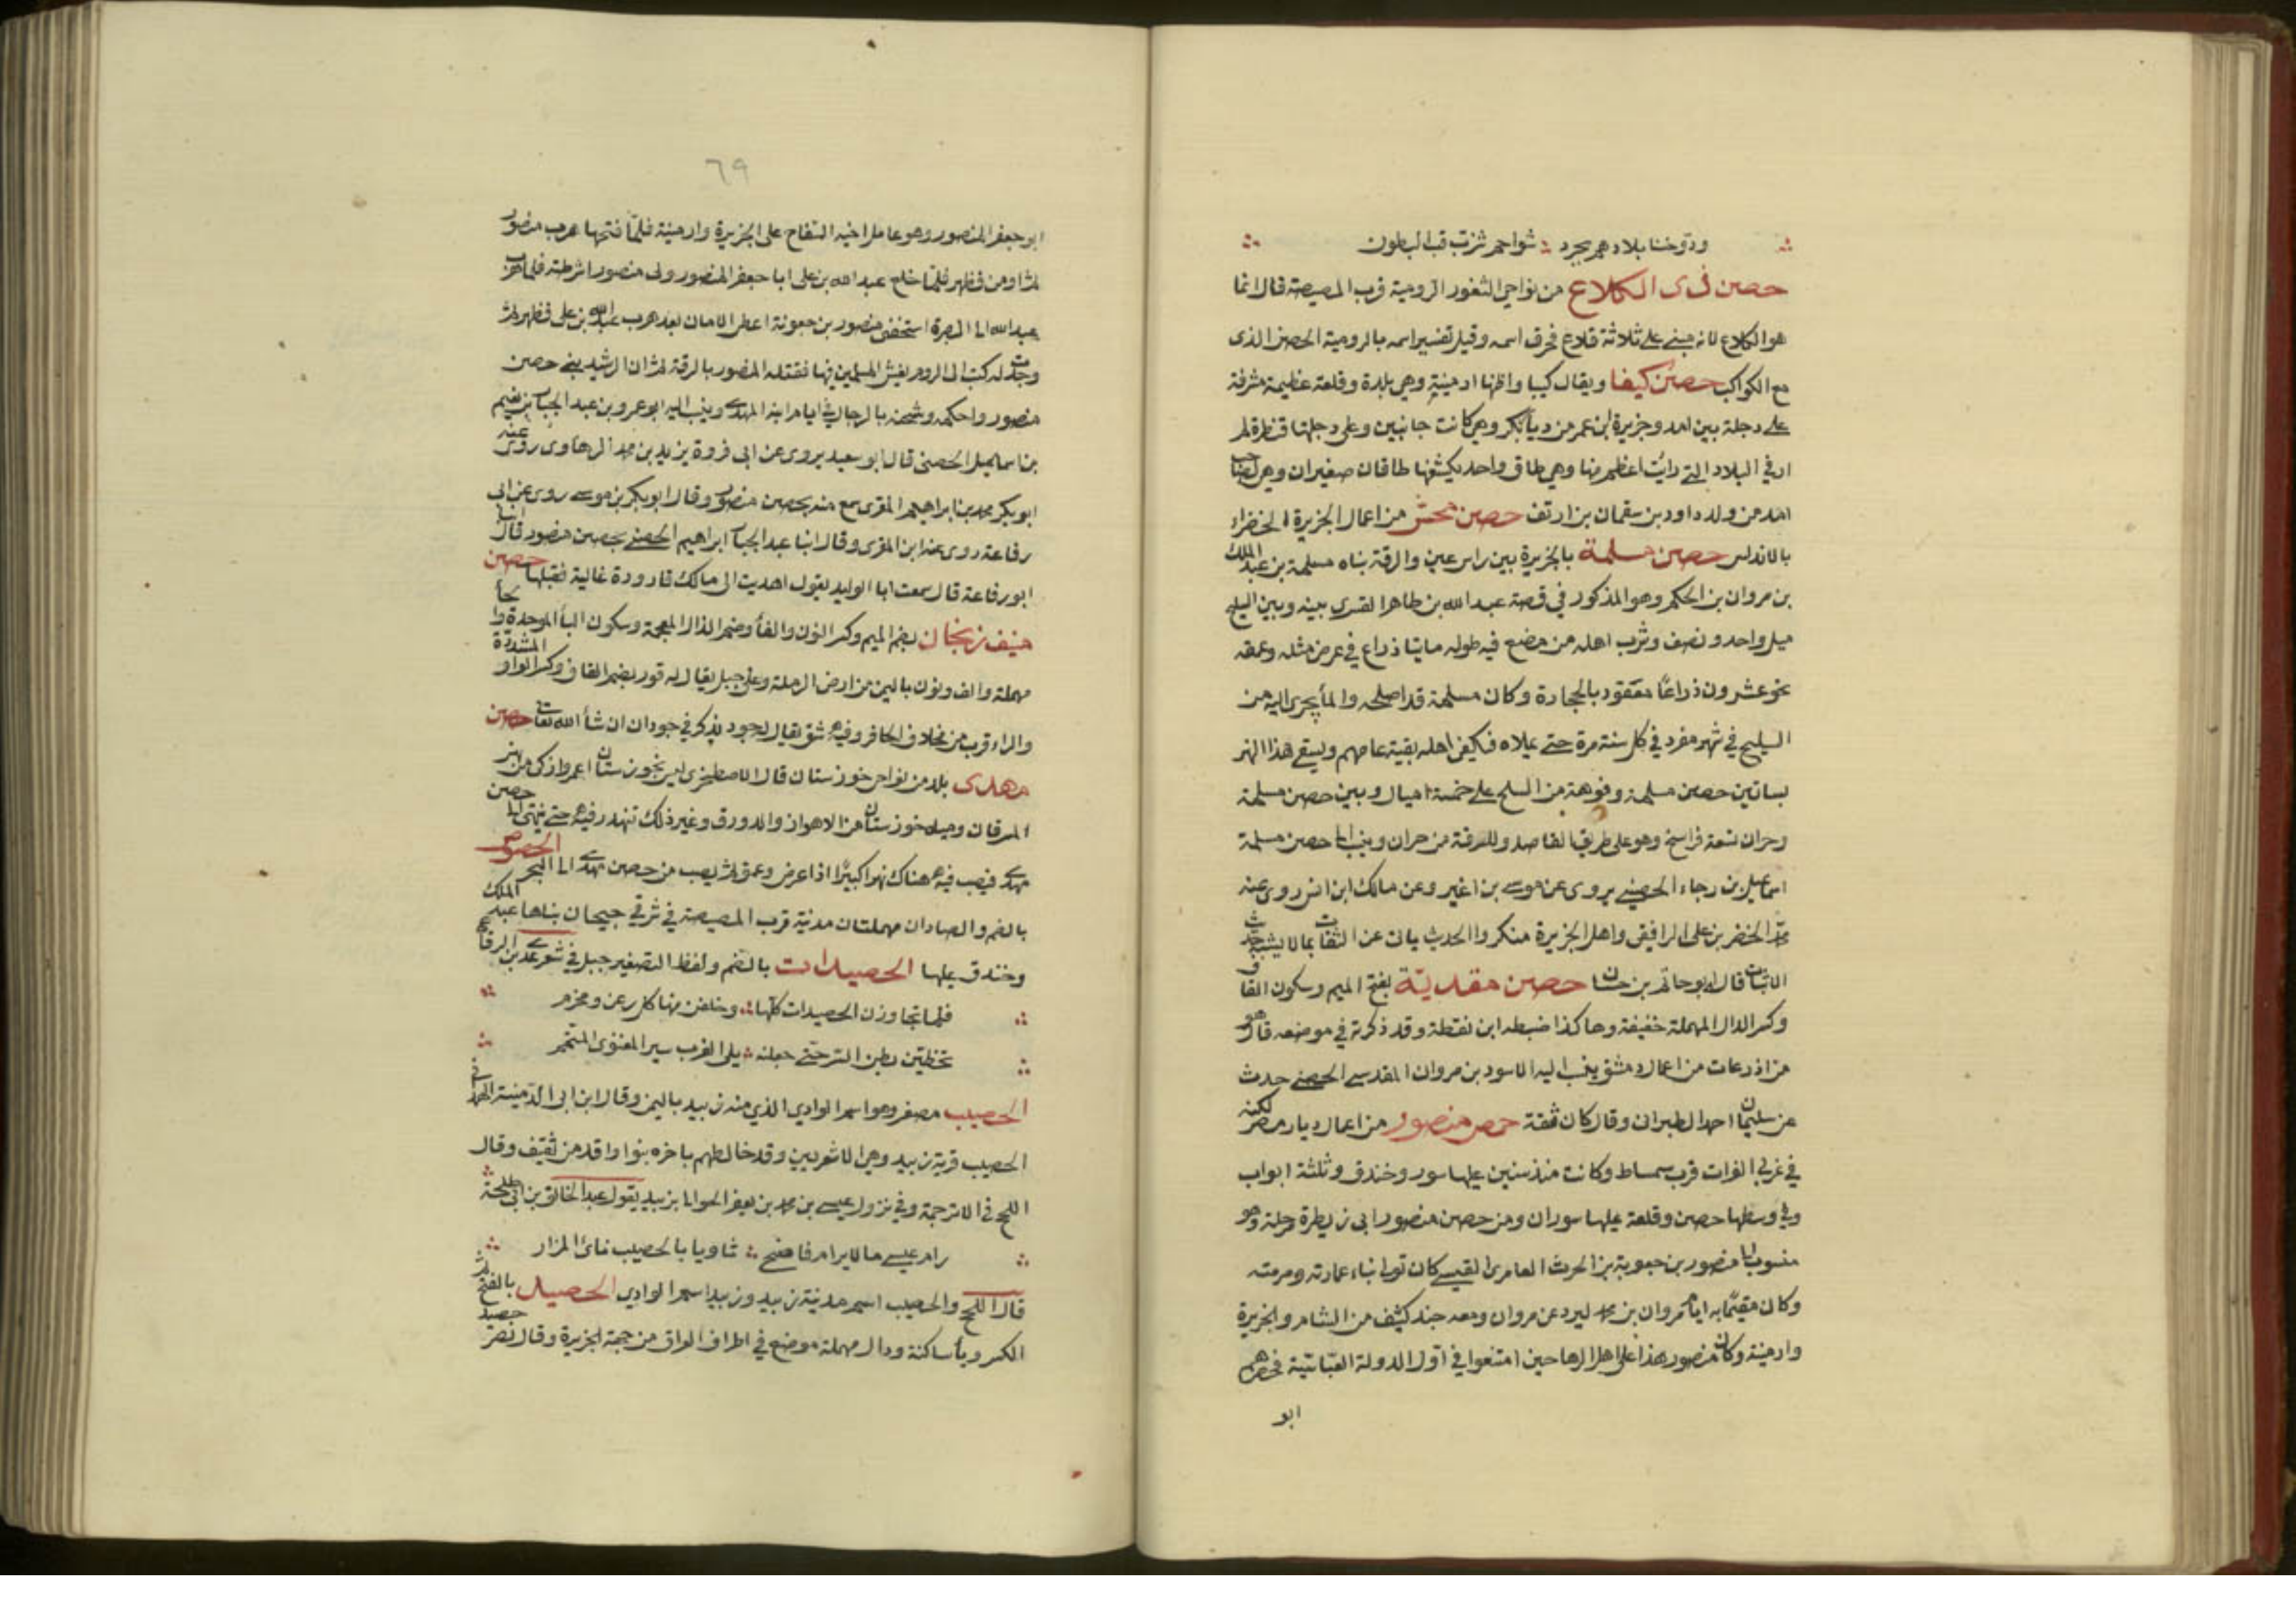 ودوخنا بلادهم بجرد ؞ شواحم شزب قب البطون
حصن ذى الكلاع من نواحي الثغور الرومية قرب المصيصة قال انما
هو الكلاع لانه مبنى على ثلاثة قلاع فحرف اسمه وقيل تفسير اسمه بالرومية الحصن الذى
مع الكواكب حصن كيفا ويقال كيبا واظنها ارمينية وهي بلدة وقلعة عظيمة مشرفة
على دجلة بين امد وجزيرة ابن عمر من ديار بكر وهي كانت جانبين وعلى دجلتها قنطرة لم
ار في البلاد التي رايت اعظم منها وهي طاق واحد يكتنفها طاقان صغيران وهي لصاحب
امد من ولد داود بن سقمان بن ارتق حصن محسن من اعمال الجزيرة الخضراء
بالاندلس حصن مسلمة بالجزيرة بين راس عين والرقة بناه مسلمة بن عبد الملك
بن مروان بن الحكم وهو المذكور في قصة عبد الله بن طاهر القسري بينه وبين البليخ
ميل واحد ونصف وشرب اهله من مصنع فيه طوله مايتا ذراع في عرض مثله وعمقه
نحو عشرون ذراعًا معقود بالحجارة وكان مسلمة قد اصلحه والمأ يجرى اليه من
البليخ في نهر مفرد في كل سنة مرة حتى يملاه فيكفى اهله بقية عامهم ويسقى هذا النهر
بساتين حصن مسلمة وفوهته من البليخ على خمسة اميال وبين حصن مسلمة
وحران تسعة فراسخ وهو على طريق القاصد للرقة من حران وينسب الى حصن مسلمة
اسماعيل بن رجاء الحصنى يروى عن موسى بن اعين وعن مالك ابن انس روى عنه
محمد الخضر بن على الرافقى واهل الجزيرة منكر الحديث ياتى عن الثقات بما لا يشبه حديث
الاثبات قاله ابو حاتم بن حبان حصن مقدية بفتح الميم وسكون القاف
وكسر الدال المهملة خفيفة وهاكذا ضبطه ابن نقطة وقد ذكرته في موضعه قال هو
من اذرعات من اعمال دمشق ينسب اليه الاسود بن مروان المقدسى الحصنى حدث
عن سليمان احمد الطبرانى وقال كان ثقة حصن منصور من اعمال ديار مضر لكنه
في غربى الفرات قرب سميساط وكانت منذ سنين عليها سور وخندق وثلثة ابواب
وفي وسطها حصن وقلعة عليها سوران ومن حصن منصور الى زبطرة مرحلة وهو
منسوب الى منصور بن جعونة بن الحرث العامرى القيسى كان تولى بناء عمارته ومرمته
وكان مقيمًا به ايام مروان بن محمد ليرد عن مروان ومعه جند كثيف من الشام والجزيرة
وارمينية وكان منصور هذا على اهل الرها حين امتنعوا في اول الدولة العباسية فحصرهم
ابو
٦٩
ابو جعفر المنصور وهو عامل اخيه السفاح على الجزيرة وارمينية فلما فتحها هرب منصور
ثم اومن فظهر فلما خلع عبد الله بن على ابا جعفر المنصور ولى منصور اشرطته فلما هرب
عبد الله الى البصرة استخفى منصور بن جعونة اعطى الامان بعد هرب عبد الله بن على فظهر ثم
وجدت له كتب الى الروم بغش المسلمين فيها فقتله المنصور بالرقة ثم ان الرشيد بنى حصن
منصور واحكمه وشحنه بالرجال في ايام ابيه المهدى وينسب اليه ابو عمرو بن عبد الجبار بن نعيم
بن اسماعيل الحصنى قال ابو سعيد يروى عن ابى فروة يزيد بن محمد الرهاوى روى عنه
ابو بكر محمد بن ابراهيم المقرى سمع منه بحصن منصور وقال ابو بكر بن موسى روى عن ابى
رفاعة روى عنه ابن المقرى وقال انبا عبد الجبار ابراهيم الحصنى بحصن منصور قال انبا
ابو رفاعة قال سمعت ابا الوليد يقول اهديت الى مالك قارورة غالية فقبلها حصن
منيف ذبحان بضم الميم وكسر النون والفأ وضم الذال المعجمة وسكون البأ الموحدة وا حأ
مهملة والف ونون باليمن من ارض الدملة وعلى جبل يقال له قور بضم القاف وكسر الواو المشددة
والراء قرب من مخلاف الحافر وفيه شق يقال له جود يذكر في جودان ان شأ الله تعالى حصن
مهدى بلد من نواحي خوزستان قال الاصطخرى ليس بخوزستان اعمر وازكى من نهر
المسرقان وجبله خوزستان من الاهواز والدورق وغير ذلك تنهدر فيه حتى ينتهى الى حصن
مهدى فيصب فيه هناك نهرا كبيرًا اذا عرض وعمق ثم يصب من حصن مهدى الى البحر الحصوص
بالضم والصادان مهملتان مدينة قرب المصيصة في شرقي جيحان بناها عبد الملك
وخندق عليها الحصيدات بالضم ولفظ التصغير جبل في شعر عدى بن الرقاع
فلما تجاوزن الحصيدات كلها ؞ وخلفن منها كل رعن ومخرم
تخطين بطن السر حتى جعلنه ؞ يلى الغرب سير المنتوى المتيمم
الحصيب مصغر وهو اسم الوادى الذي منه زبيد باليمن وقال ابن ابى الدمينة الهمدانى
الحصيب قرية زبيد وهى الاشعريين وقد خالطهم باخره بنو اواقد من ثقيف وقال
اللحجى الاترجة وفي نزول عيسى بن محمد بن يعفر الحوالى زبيد يقول عبد الخالق بن ابى طلحة
رام عيسى ما لا يرام فاضحى ؞ ثاويا بالحصيب نائ المزار
قال اللحجى والحصيب اسم مدينة زبيد وزبيد اسم الوادى الحصيد بالفتح ثم
الكسر ويأ ساكنة ودال مهملة موضع في اطراف العراق من جهة الجزيرة وقال نصر حصيد